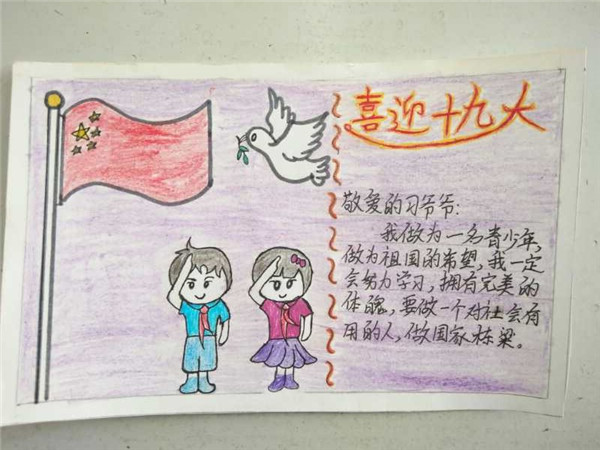 喜迎十九大
敬爱的习爷爷:
我做为一名青少年,
做为祖国的希望,我一定
会努力学习,拥有完美的
体魄,要做一个对社会有
用的人,做国家栋梁。